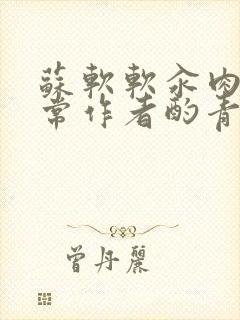 蘇軟軟汆肉
常作者酌青
曾丹麗